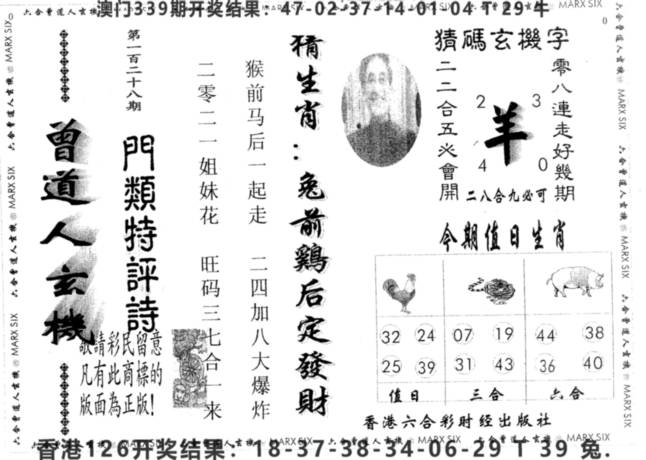 澳门339期开奖结果：47-02-37-14-01-04 T 29 牛
第一百二十八期
曾道人玄機
門類特評詩
敬請彩民留意
凡有此商標的
版面為正版！
猴前马后一起走 二四加八大爆炸
二零二一姐妹花 旺码三七合一来
猜生肖：兔前鷄后定發財
猜碼玄機字
零八連走好幾期
二二合五必會開
2 3
羊
4 0
二八合九必可
今期值日生肖
32 24 07 19 44 38
25 39 31 43 36 40
值日 三合 六合
香港六合彩财经出版社
香港126开奖结果：18-37-38-34-06-29 T 39 兔.
六合曾道人玄機 MARX SIX